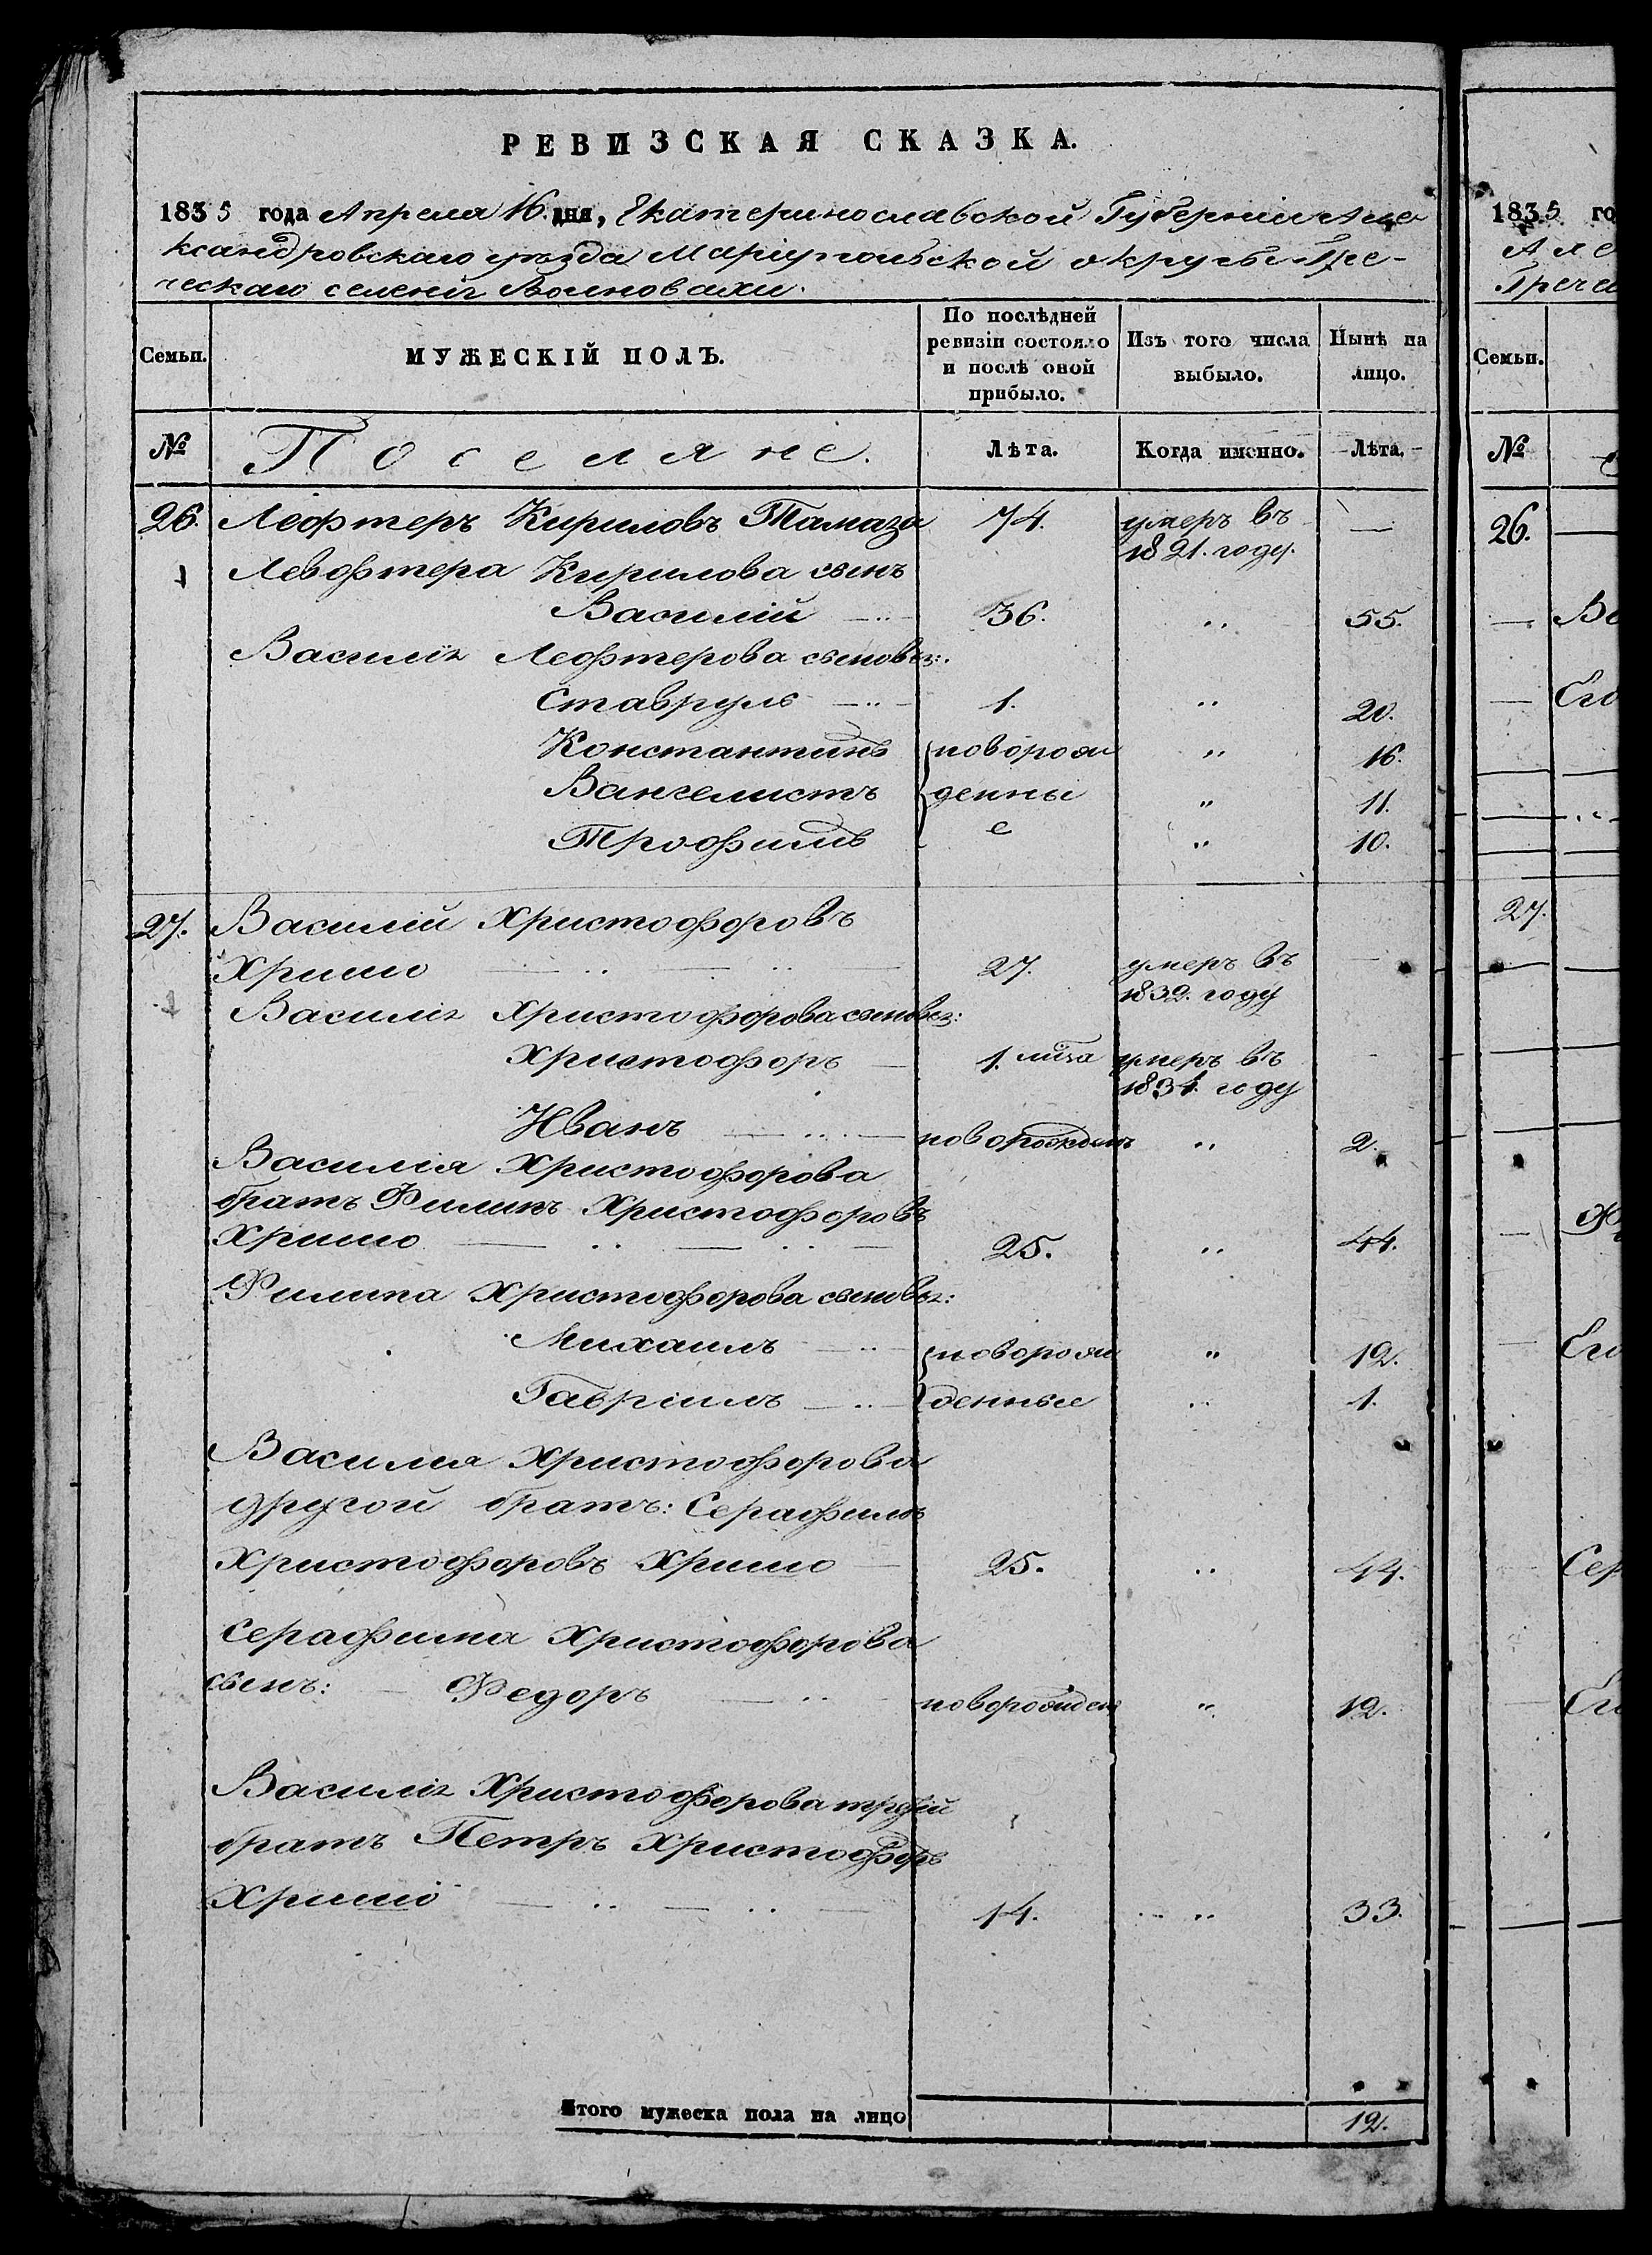 РЕВИЗСКАЯ СКАЗКА.
1835 года Апреля 16. дня, Екатеринославской Губерніи Але-
ксандровскаго уѣзда Маріупольской округи Гре-
ческаго селенія
Семьи.
МУЖЕСКІЙ ПОЛЪ.
По послѣдней ревизіи состояло и послѣ оной прибыло.
Изъ того числа выбыло.
Нынѣ на лицо.
№ Поселяне. Лѣта. Когда именно. Лѣта.
26. Леофтеръ Кириловъ Тамаза 74. умеръ въ 1821. году. —
Левофтера Кирилова сынъ
Василій 36. " 55.
Василія Леофтерова сыновья:
Ставруль 1. " 20.
Константинъ новорож " 16.
Вангелистъ денны " 11.
Трофимъ е " 10.
27. Василій Христофоровъ
Хришо 27. умеръ въ 1832. году —
Василія Христофорова сыновья:
Христофоръ 1. лѣта умеръ въ 1831. году -
Иванъ новорожденъ " 2.
Василія Христофорова
братъ Филипъ Христофоровъ
Хришо 25. " 44.
Филипа Христофорова сыновья:
Михаилъ новорож " 12.
Гавріилъ денные " 1.
Василия Христофорова
другой братъ: Серафимъ
Христофоровъ Хришо 25. " 44.
Серафима Христофорова
сынъ: Федоръ новорожден " 12.
Василія Христофорова третій
братъ Петръ Христофоръ
Хришо 14. " 33.
Итого мужеска пола на лицо 12.
1835 го
Але
Грече
Семьи.
№
26. —
— Ва
— Его
27.
— Фи
Его
Сер
Его